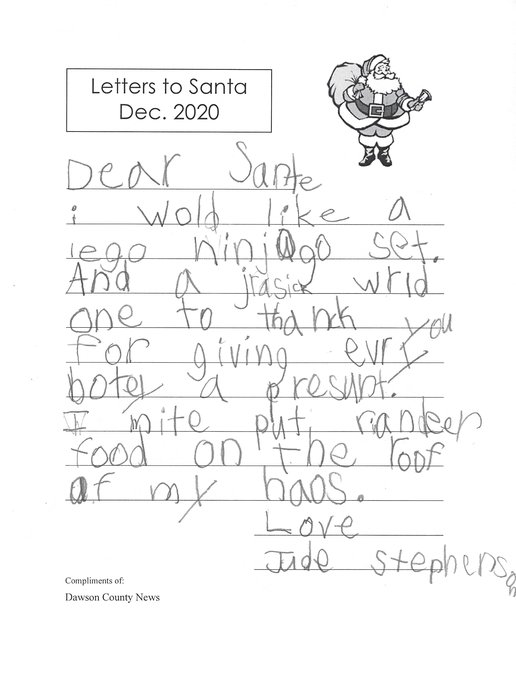 Letters to Santa
Dec. 2020
Dear Sante
i wold like a
lego ninjago set.
And a jrasick wrld
one to thanck you
for giving evry
botey a presunt.
I mite put riandeer
food on the roof
of my haos.
Love
Jude Stephenson
Compliments of:
Dawson County News